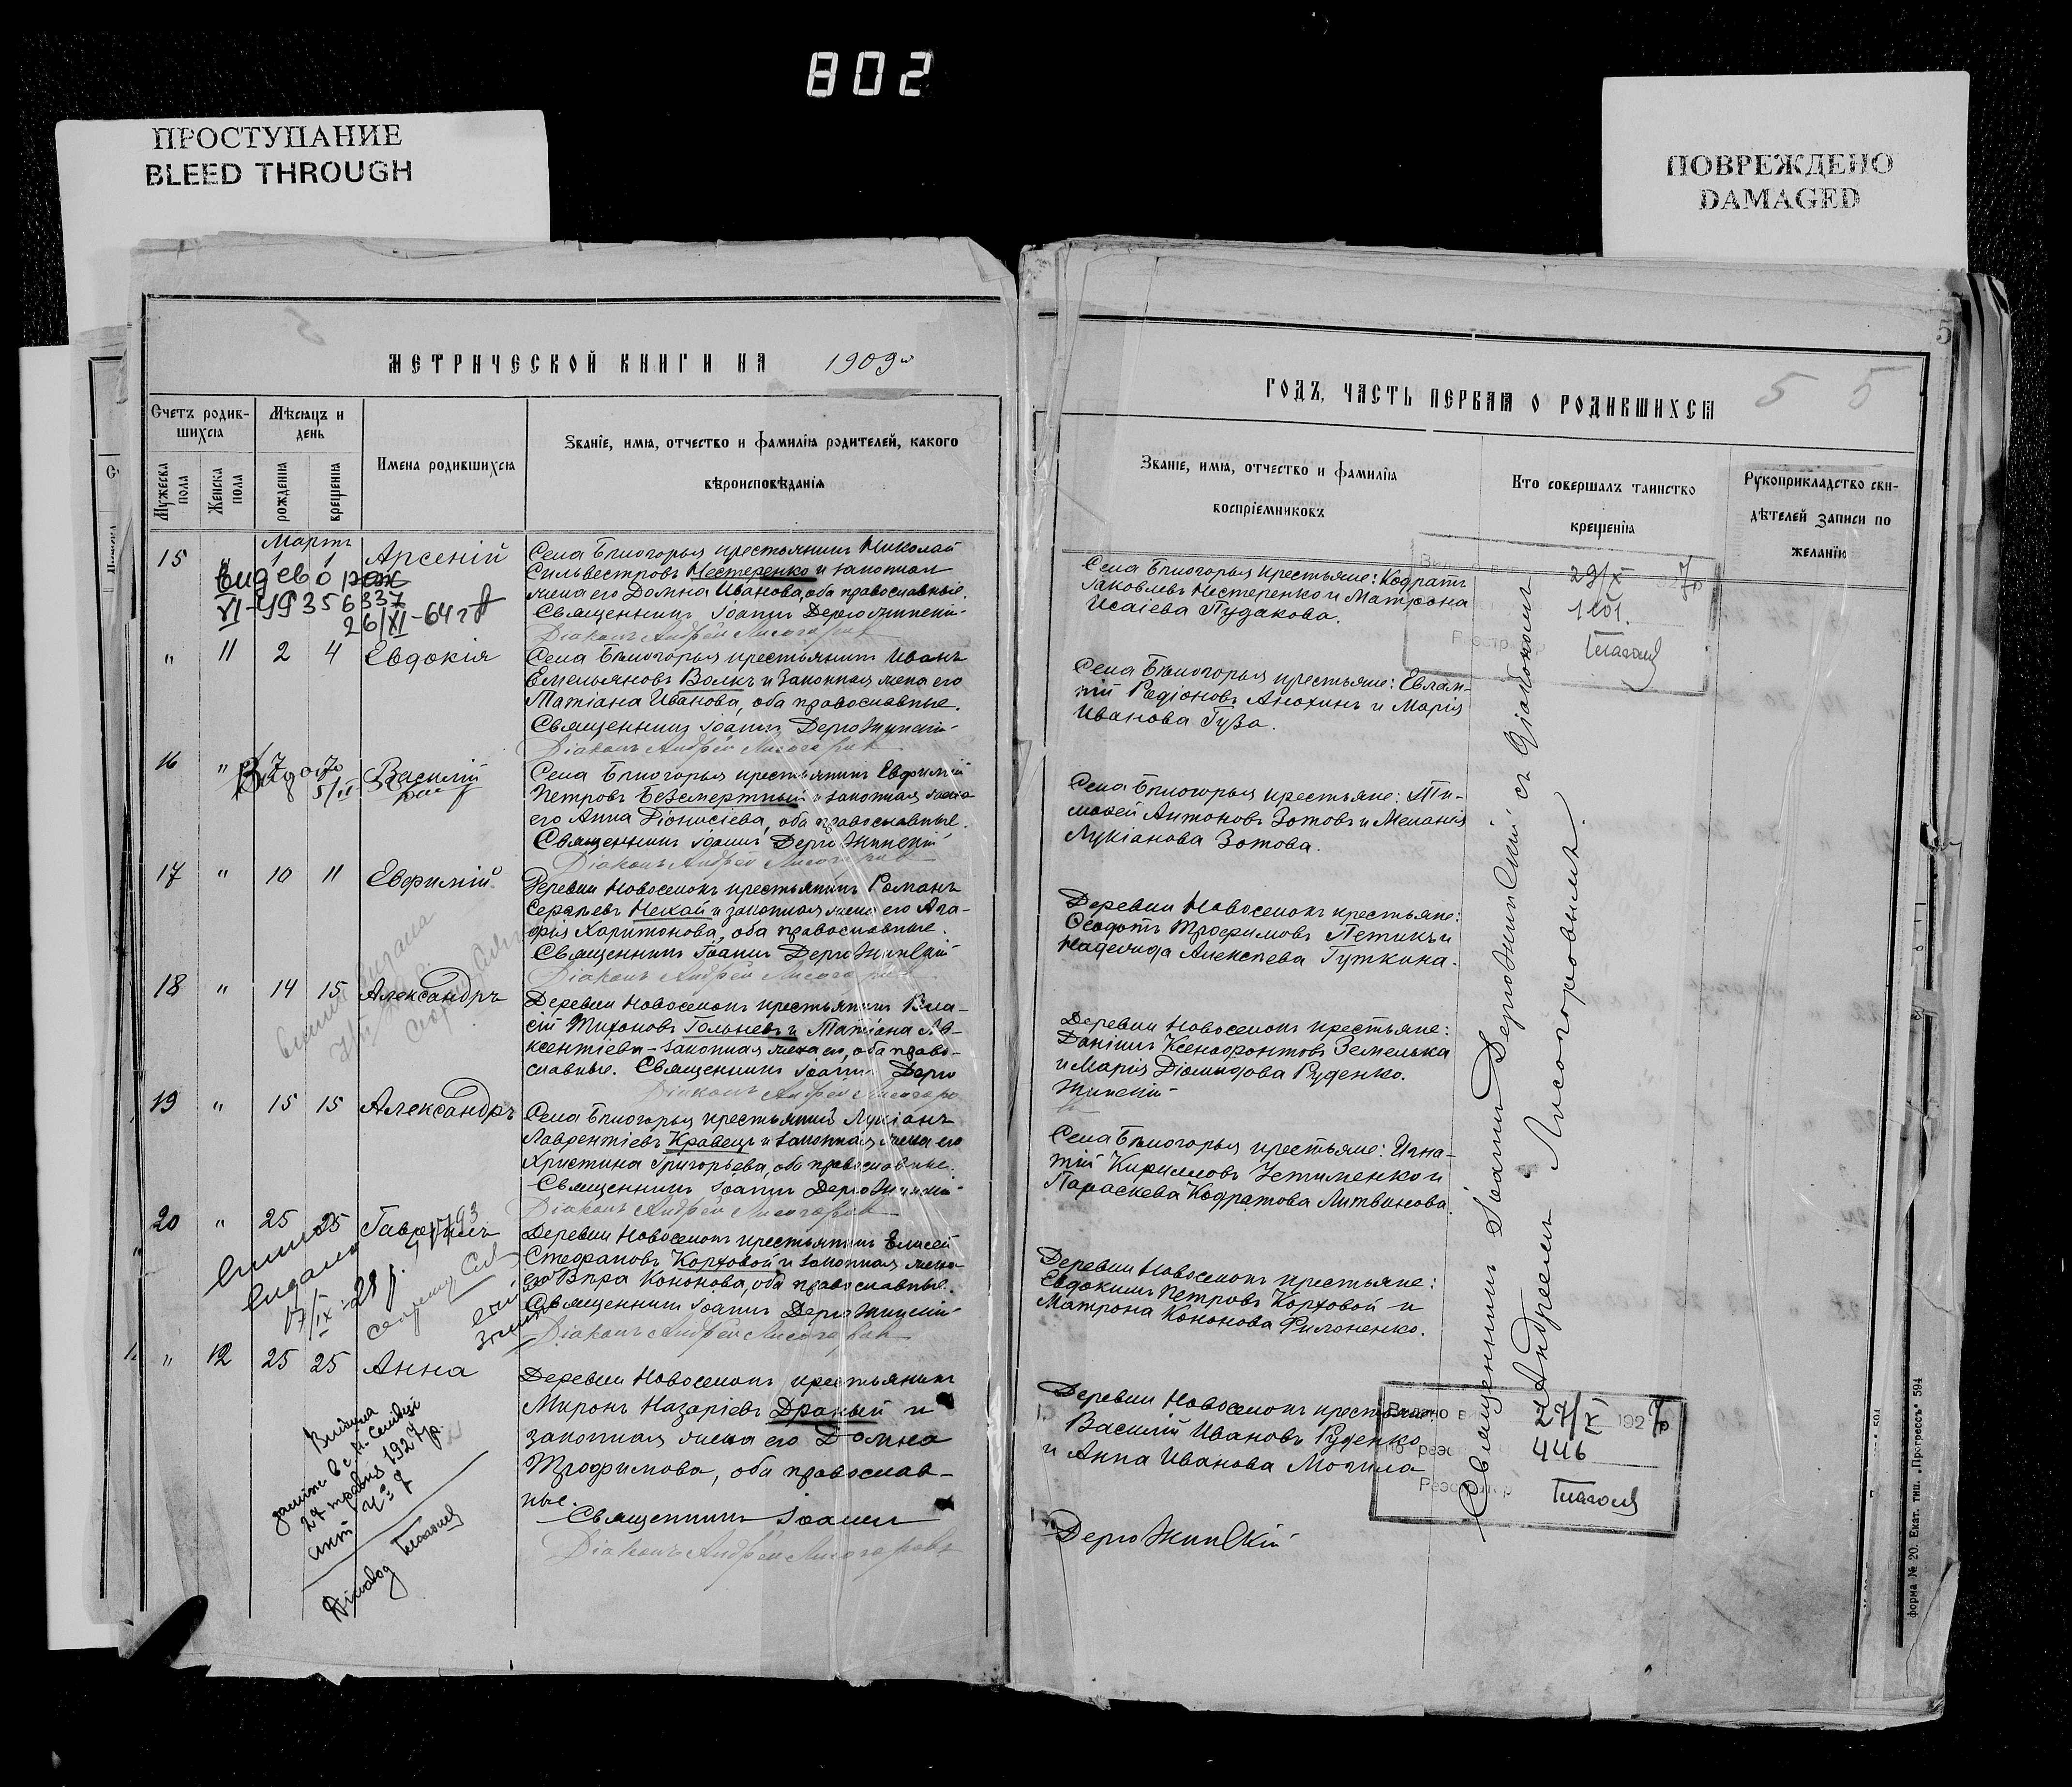 802
ПРОСТУПАНИЕ
BLEED THROUGH
ПОВРЕЖДЕНО
DAMAGED
МЕТРИЧЕСКОЙ КНИГИ НА 1909й
Счетъ родив-
шихся
Мѣсяцъ и
день
Имена родившихся
Званіе, имя, отчество и фамилія родителей, какого
вѣроисповѣданія
Мужеска
пола
Женска
пола
рожденія
крещенія
Мартъ
15 " 1 1 Арсеній
Села Бѣлогорья крестьянинъ Николай
Сильвестровъ Нестеренко и законная
жена его Домна Иванова, оба православные.
Священникъ Іоаннъ Держинскій
Діаконъ Андрей Лисогоровъ
VI-ЧЯ 356337
26/XI-64г
" 11 2 4 Евдокія
Села Бѣлогорья крестьянинъ Иванъ
Емельяновъ Волкъ и законная жена его
Татіана Иванова, оба православные.
Священникъ Іоаннъ Держинскій
Діаконъ Андрей Лисогоровъ
16 " 7 Василій
Села Бѣлогорья крестьянинъ Евфимій
Петровъ Безсмертный и законная жена
его Анна Діонисіева, оба православные.
Священникъ Іоаннъ Держинскій
Діаконъ Андрей Лисогоровъ
17 " 10 11 Евфимій
Деревни Новоселокъ крестьянинъ Романъ
Сергѣевъ Нехай и законная жена его Ага-
фія Харитонова, оба православные.
Священникъ Іоаннъ Держинскій
Діаконъ Андрей Лисогоровъ
18 " 14 15 Александръ
Деревни Новоселокъ крестьянинъ Вла-
сій Тихоновъ Гольневъ и Татіана Ав-
ксентіева - законная жена его, оба право-
славные. Священникъ Іоаннъ Держ
Діаконъ Андрей Лисогоро
19 " 15 15 Александръ
Села Бѣлогорья крестьянинъ Лукіанъ
Лаврентіевъ Кравецъ и законная жена его
Христина Григорьева, оба православные.
Священникъ Іоаннъ Держинскій
Діаконъ Андрей Лисогоровъ
20 " 25 25 Гавріилъ
Деревни Новоселокъ крестьянинъ Елисей
Стефановъ Корховой и законная жена
его Вѣра Кононова, оба православные.
Священникъ Іоаннъ Держинскій
Діаконъ Андрей Лисогоровъ
видана
17/IX-28 р.
" 12 25 25 Анна
Деревни Новоселокъ крестьянинъ
Миронъ Назаріевъ Драный и
законная жена его Домна
Трофимова, оба православ-
ные.
Священникъ Іоаннъ
Діаконъ Андрей Лисогоровъ
27 травня 1927 р.
ГОДЪ, ЧАСТЬ ПЕРВАЯ О РОДИВШИХСЯ
5 5
5
Званіе, имя, отчество и фамилія
воспріемниковъ
Кто совершалъ таинство
крещенія
Рукоприкладство сви-
дѣтелей записи по
желанію
Села Бѣлогорья крестьяне: Кодратъ
Іаковлевъ Нестеренко и Матрона
Исаіева Пудакова.
29/X 7р
1101.
Села Бѣлогорья крестьяне: Евлам-
пій Родіоновъ Анохинъ и Марія
Иванова Гуза.
Села Бѣлогорья крестьяне: Ти-
моѳей Антоновъ Зотовъ и Меланія
Лукіанова Зотова.
Деревни Новоселокъ крестьяне:
Ѳеодотъ Трофимовъ Петикъ и
Надежда Алексѣева Гуткина.
Деревни Новоселокъ крестьяне:
Даніилъ Ксенофонтовъ Земелька
и Марія Діомидова Руденко.
жинскій
Села Бѣлогорья крестьяне: Игна-
тій Кирилловъ Устименко и
Параскева Кодратова Литвинова.
Деревни Новоселокъ крестьяне:
Евдокимъ Петровъ Корховой и
Матрона Кононова Филоненко.
Деревни Новоселокъ крестьяне
Василій Ивановъ Руденко
и Анна Иванова Могила
Держинскій
Видано
27/X 1927р
446
Священникъ Іоаннъ Держинскій съ діакономъ
Андреемъ Лисогоровымъ.
форма № 20. Екат. тип. „Прогрессъ" 594